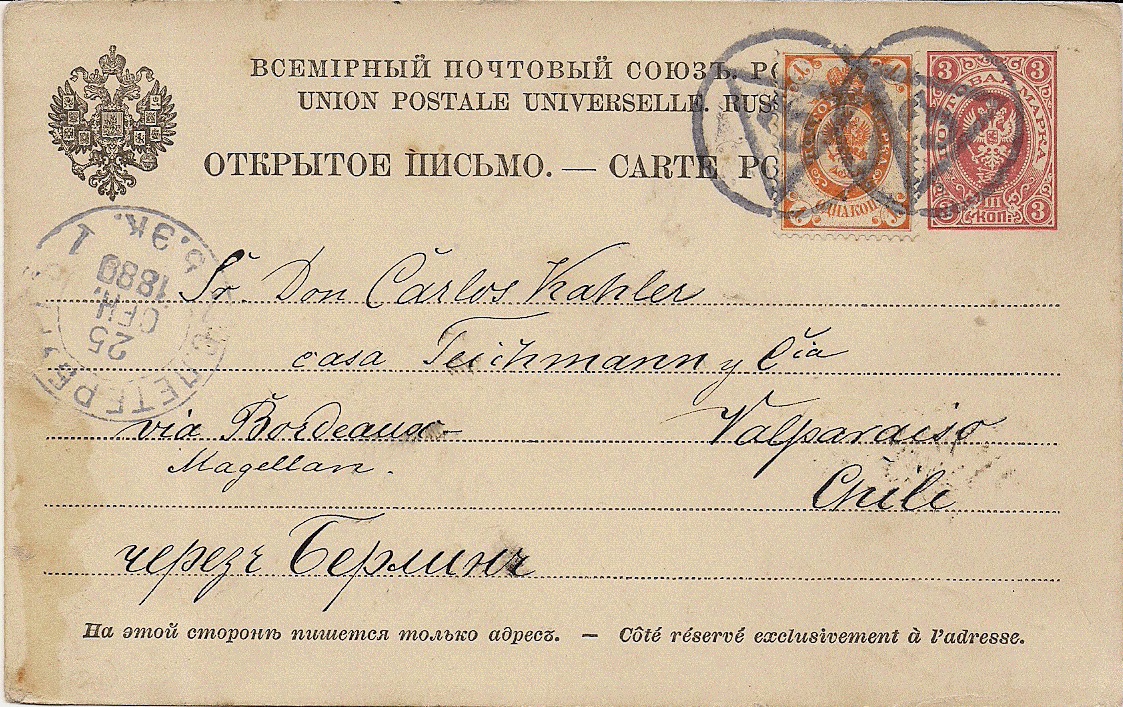 ВСЕМІРНЫЙ ПОЧТОВЫЙ СОЮЗЪ. РО
UNION POSTALE UNIVERSELLE. RUSS
ОТКРЫТОЕ ПИСЬМО. — CARTE PO
1 1
ОДНА КОП.
1 1
3 3
МАРКА
III
КОП.
3 3
С.ПЕТЕРБ
25
СЕН.
1889
1
ЭК.
Sr. Don Carlos Kahler
casa Teichmann y Cia
via Bordeaux
Valparaiso
Magellan.
Chile
черезъ Берлинъ
На этой сторонѣ пишется только адресъ. — Côté réservé exclusivement à l'adresse.